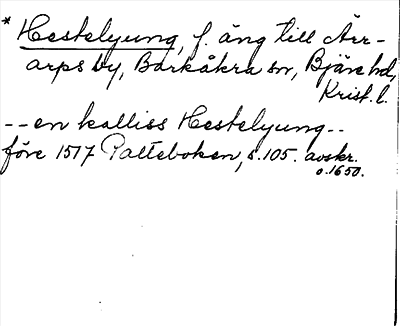 * Hestelyung, f. äng till Ärr-
arps by, Barkåkra sn, Bjäre hd,
Krist. l.
-- en kalliss Hestelyung --
före 1517 Palteboken, s. 105. avskr.
o. 1650.